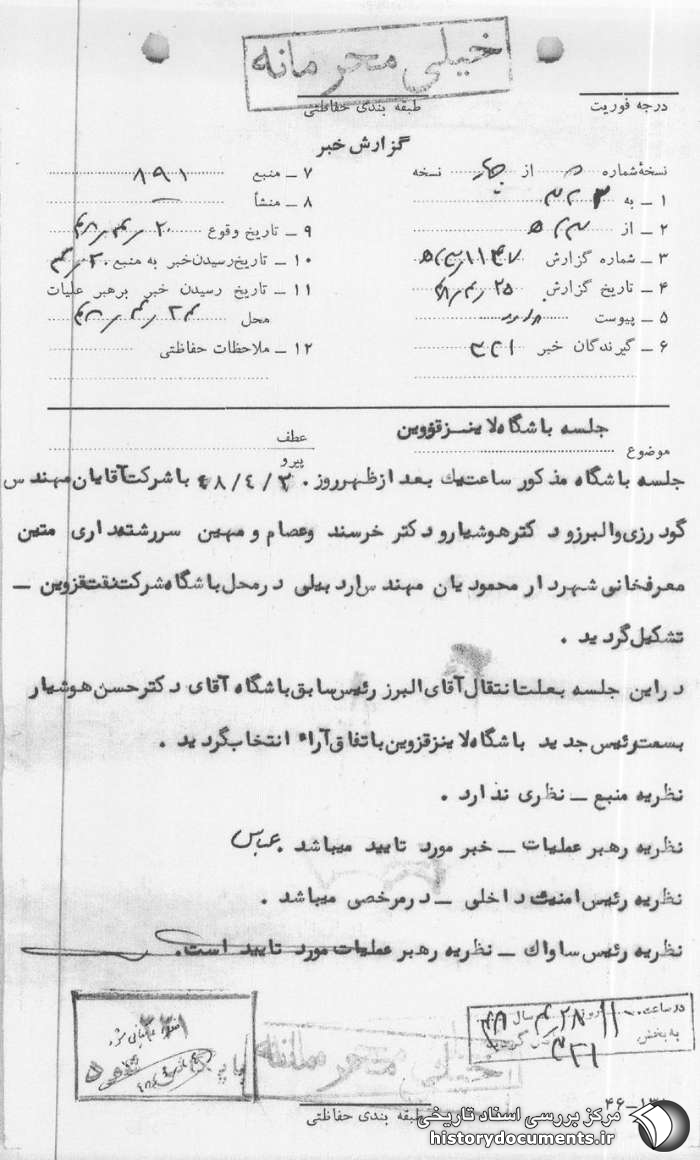 خیلی محرمانه
درجه فوریت
طبقه بندی حفاظتی
گزارش خبر
نسخهٔ شماره از نسخه
۱ ـ به ۳۲۳
۲ ـ از
۳ ـ شماره گزارش
۴ ـ تاریخ گزارش ۴۸/۴/۲۵
۵ ـ پیوست
۶ ـ گیرندگان خبر ۳۲۱
۷ ـ منبع ۸۹۱
۸ ـ منشأ
۹ ـ تاریخ وقوع ۴۸/۴/۲۰
۱۰ ـ تاریخ رسیدن خبر به منبع
۱۱ ـ تاریخ رسیدن خبر برهبر علیات
محل
۱۲ ـ ملاحظات حفاظتی
موضوع جلسه باشگاه لاینز قزوین
عطف
پیرو
جلسه باشگاه مذکور ساعت یک بعد از ظهر روز ۴۸/۴/۲۰ با شرکت آقایان مهندس
گودرزی و البرز و دکتر هوشیار و دکتر خرسند وعصام و مهین سررشته داری متین
معرفخانی شهردار محمودیان مهندس اردبیلی در محل باشگاه شرکت نفت قزوین ـ
تشکیل گردید .
در این جلسه بعلت انتقال آقای البرز رئیس سابق باشگاه آقای دکتر حسن هوشیار
بسمت رئیس جدید باشگاه لاینز قزوین باتفاق آراء انتخاب گردید .
نظریه منبع ـ نظری ندارد .
نظریه رهبر عملیات ـ خبر مورد تایید میباشد . عباس
نظریه رئیس امنیت داخلی ـ در مرخصی میباشد .
نظریه رئیس ساواک ـ نظریه رهبر عملیات مورد تایید است .
در ساعت ۱۱ روز ۲۸/۴ سال ۴۸
به بخش ۳۲۱
خیلی محرمانه
طبقه بندی حفاظتی
مرکز بررسی اسناد تاریخی
historydocuments.ir